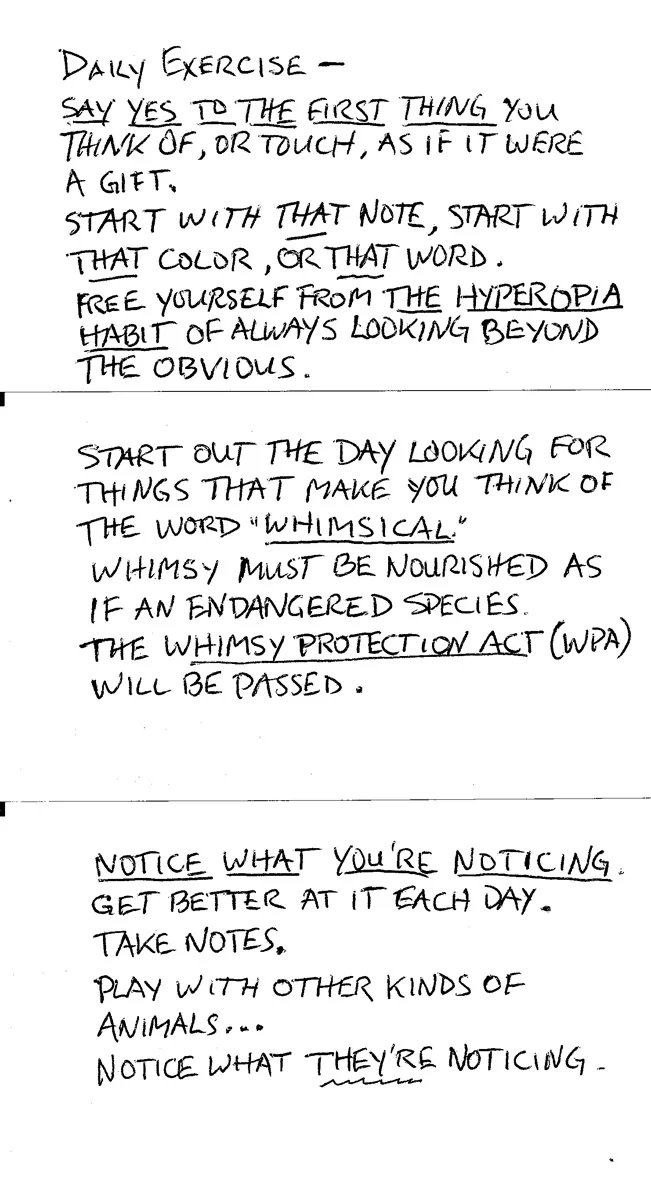 DAILY EXERCISE –
SAY YES TO THE FIRST THING YOU
THINK OF, OR TOUCH, AS IF IT WERE
A GIFT.
START WITH THAT NOTE, START WITH
THAT COLOR, OR THAT WORD.
FREE YOURSELF FROM THE HYPEROPIA
HABIT OF ALWAYS LOOKING BEYOND
THE OBVIOUS.
START OUT THE DAY LOOKING FOR
THINGS THAT MAKE YOU THINK OF
THE WORD "WHIMSICAL."
WHIMSY MUST BE NOURISHED AS
IF AN ENDANGERED SPECIES.
THE WHIMSY PROTECTION ACT (WPA)
WILL BE PASSED.
NOTICE WHAT YOU'RE NOTICING.
GET BETTER AT IT EACH DAY.
TAKE NOTES.
PLAY WITH OTHER KINDS OF
ANIMALS...
NOTICE WHAT THEY'RE NOTICING.